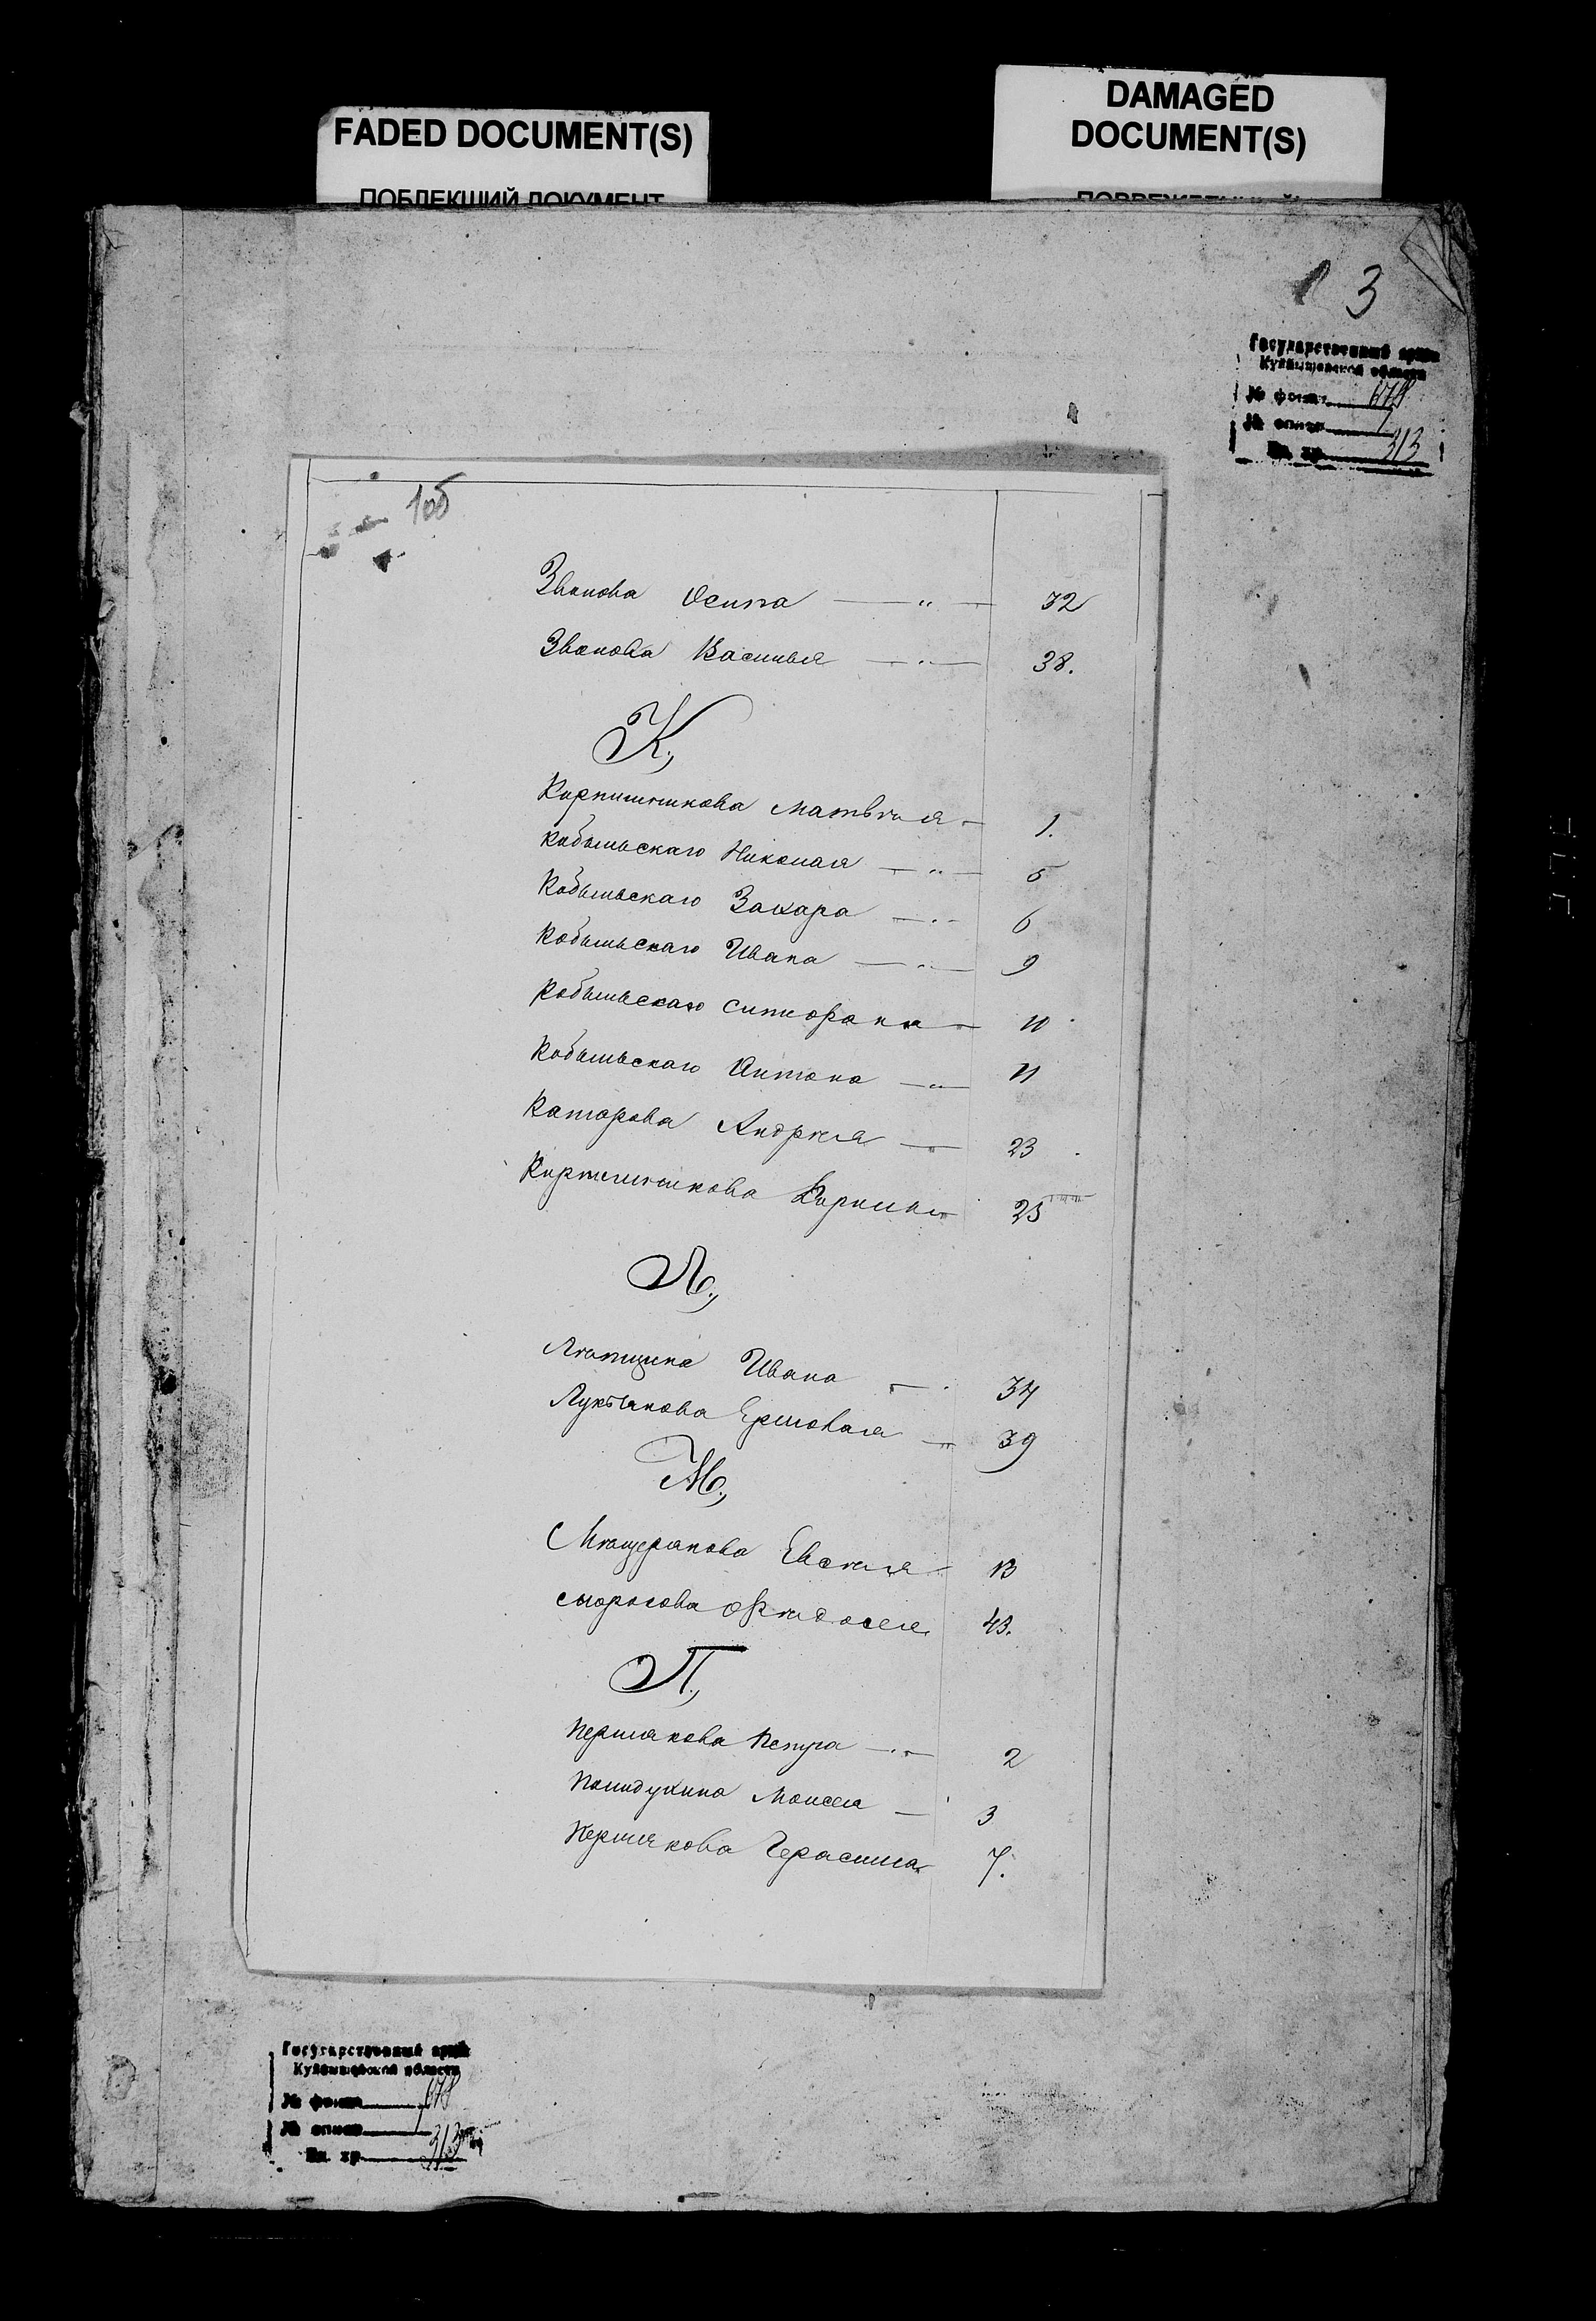 FADED DOCUMENT(S)
ПОБЛЕКШИЙ ДОКУМЕНТ
DAMAGED
DOCUMENT(S)
3
Государственный архив
Куйбышевской области
№ фонда 678
№ описи 1
Ед. хр. 313
1об
Званова Осипа — " — 32
Званова Васильья — " — 38.
К.,
Кирпишникова Матвѣя — 1.
Кобыльскаго Николая — " — 5
Кобыльскаго Захара — " — 6
Кобыльскаго Ивана — " — 9
Кобыльскаго 10
Кобыльскаго Антона — " — 11
Каторова Андрѣя — " — 23
Кирпишникова 25
Л.,
Ивана — " 34
Лукьянова Ермолая — " — 39
М.,
Мѣщерякова Евсѣя — 13
Ѳедосея 43.
П.,
Пермякова Петра — " — 2
Моисея — 3
Пермякова Герасима 7.
Государственный архив
Куйбышевской области
№ фонда 678
№ описи 1
Ед. хр. 313